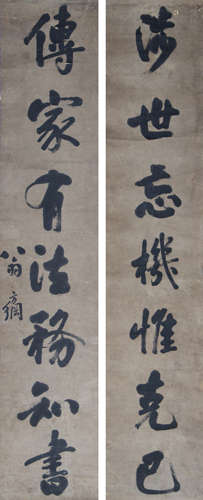 涉世忘機惟克己
傳家有法務知書
翁方綱